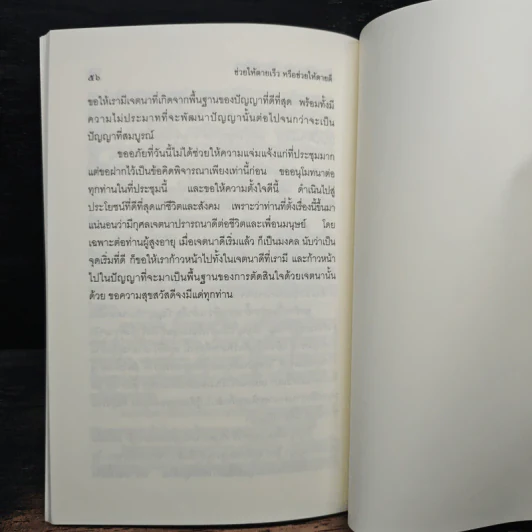 ๕๖
ช่วยให้ตายเร็ว หรือช่วยให้ตายดี
ขอให้เรามีเจตนาที่เกิดจากพื้นฐานของปัญญาที่ดีที่สุด พร้อมทั้งมี
ความไม่ประมาทที่จะพัฒนาปัญญานั้นต่อไปจนกว่าจะเป็น
ปัญญาที่สมบูรณ์
ขออภัยที่วันนี้ไม่ได้ช่วยให้ความแจ่มแจ้งแก่ที่ประชุมมาก
แต่ขอฝากไว้เป็นข้อคิดพิจารณาเพียงเท่านี้ก่อน ขออนุโมทนาต่อ
ทุกท่านในที่ประชุมนี้ และขอให้ความตั้งใจดีนี้ ดำเนินไปสู่
ประโยชน์ที่ดีที่สุดแก่ชีวิตและสังคม เพราะว่าท่านที่ตั้งเรื่องนี้ขึ้นมา
แน่นอนว่ามีกุศลเจตนาปรารถนาดีต่อชีวิตและเพื่อนมนุษย์ โดย
เฉพาะต่อท่านผู้สูงอายุ เมื่อเจตนาดีเริ่มแล้ว ก็เป็นมงคล นับว่าเป็น
จุดเริ่มที่ดี ก็ขอให้เราก้าวหน้าไปทั้งในเจตนาดีที่เรามี และก้าวหน้า
ไปในปัญญาที่จะมาเป็นพื้นฐานของการตัดสินใจด้วยเจตนานั้น
ด้วย ขอความสุขสวัสดีจงมีแด่ทุกท่าน